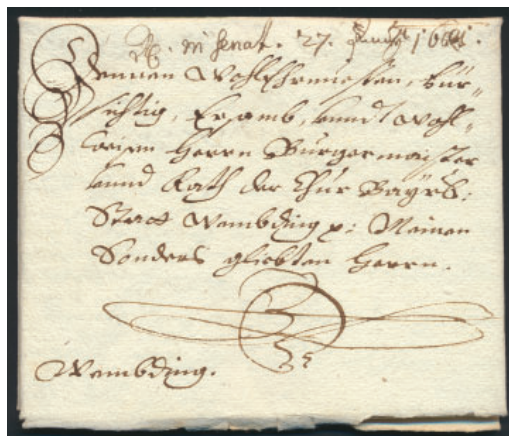 in Senat. 27.
Dennen Wohl Ehrnuesten, Für-
sichtig, Ersamb, vnnd Wohl-
weisen Herrn Burgermaister
vnnd Rath der Chur Bayrs:
Statt Wembding p: Meinen
Sonders geliebten Herrn.
Wembding.